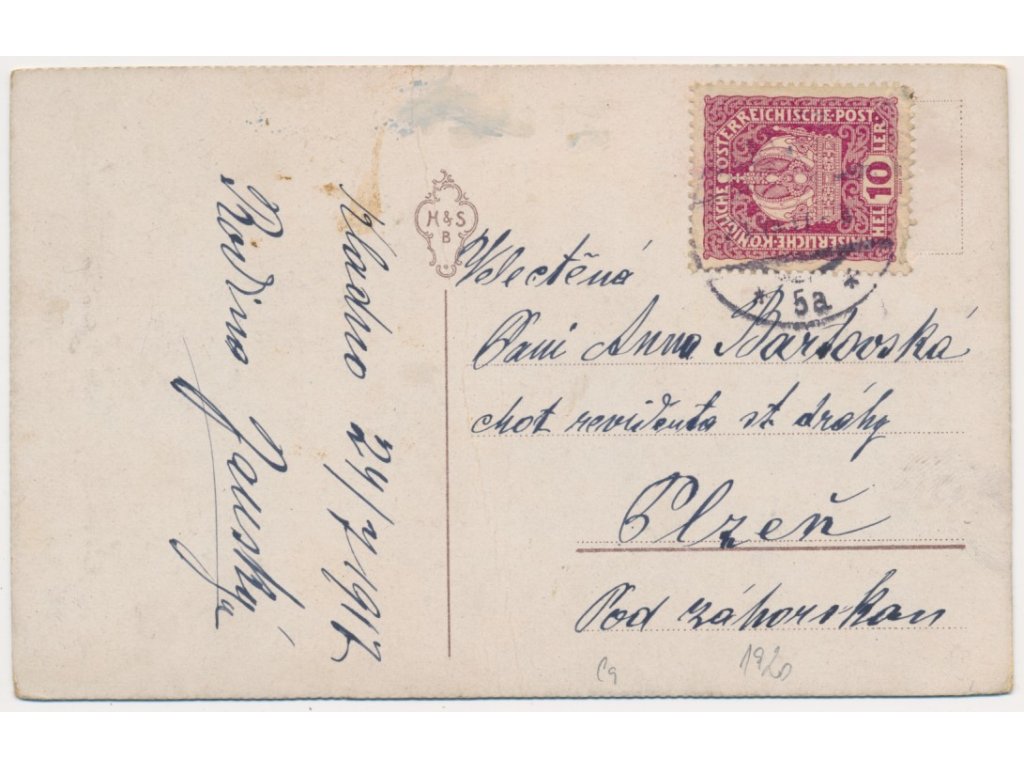 Kladno 24/7 1917
Rodina
H & S
B
KAISERLICHE KÖNIGLICHE ÖSTERREICHISCHE POST
10
HELLER
5a
Velectěná
Paní Anna Bartovská
chot revidenta st dráhy
Plzeň
Pod záhorskou
1920